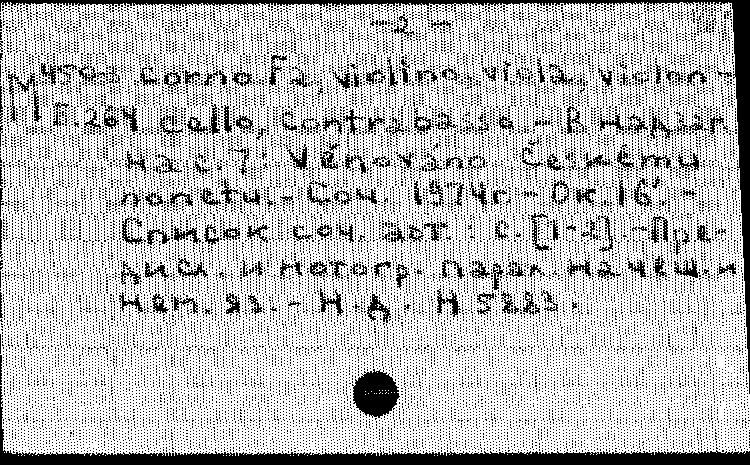 - 2 -
М 4503 corno Fa, violino, viola, violon-
Г.264 cello, contrabasso. - В надзаг.
на с. 7: Věnováno Českému
nonetu. - Соч. 1974г. - Ок. 16'. -
Список соч. авт.: с. [1-2]. - Пре-
дисл. и нотогр. парал. на чеш. и
нем. яз. - Н.Д. Н 5223.